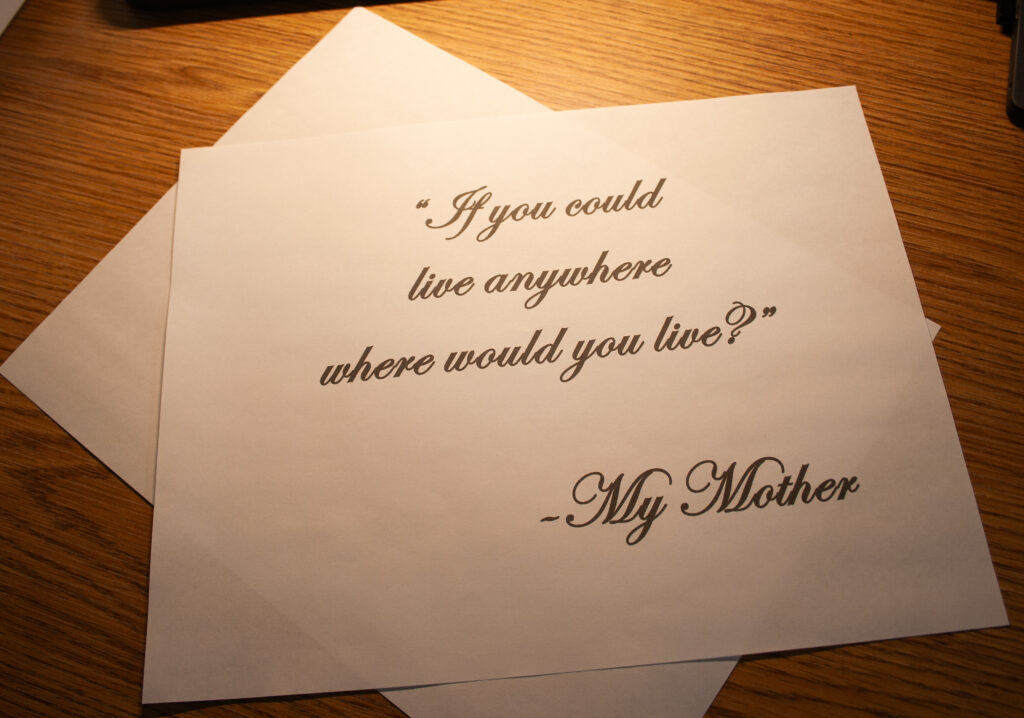 “If you could
live anywhere
where would you live?”
-My Mother